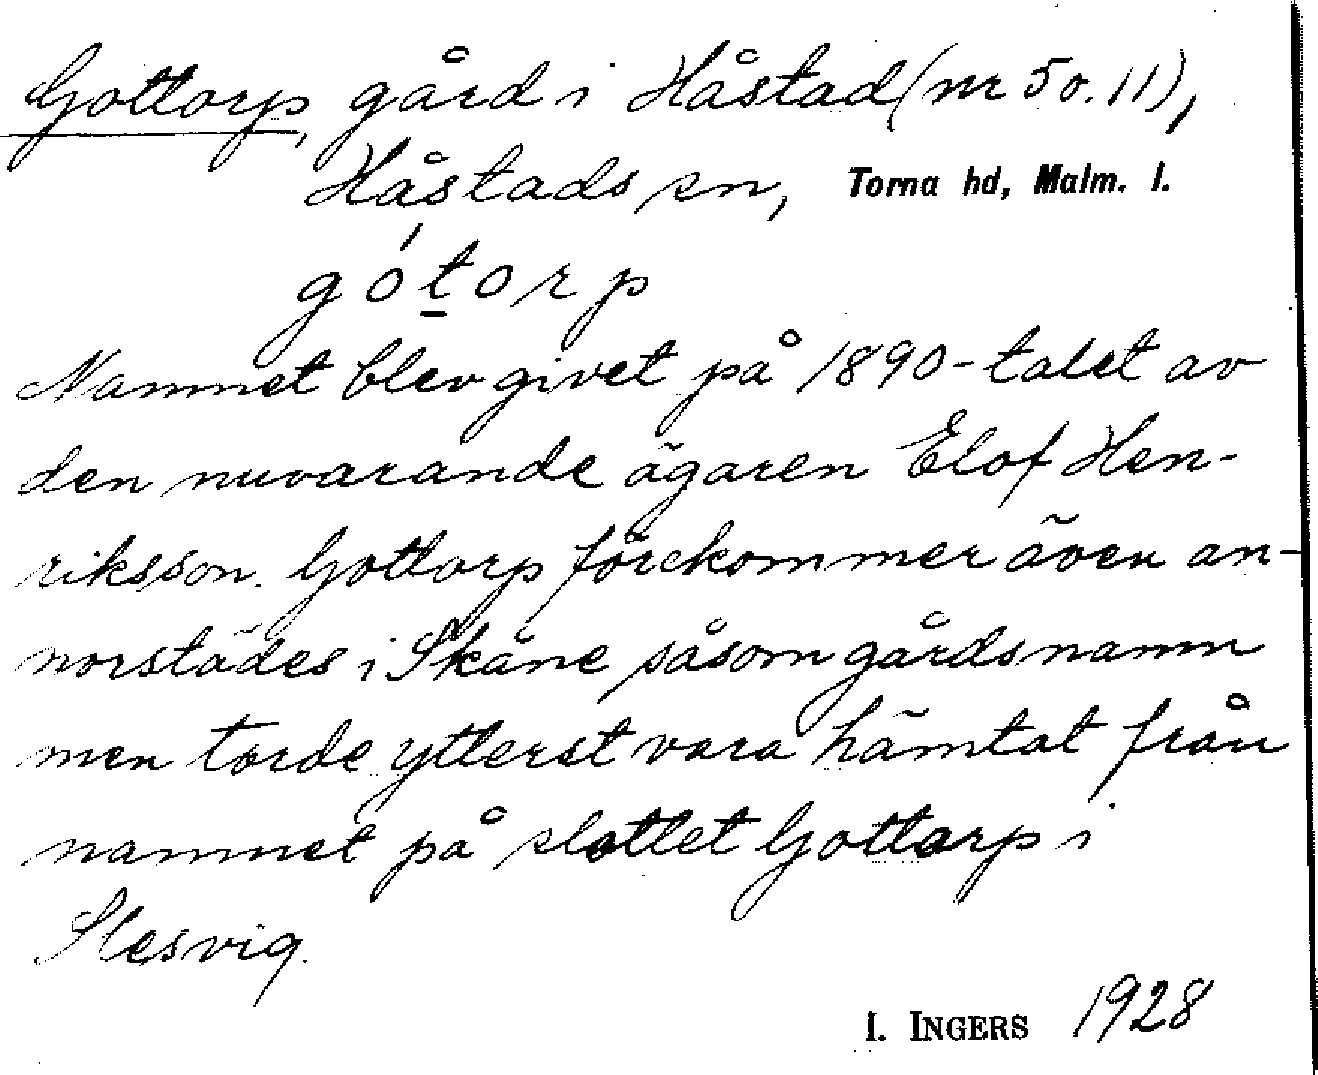 Gottorp, gård i Håstad (nr 5 o. 11),
Håstads sn, Torna hd, Malm. l.
gótorp
Namnet blev givet på 1890-talet av
den nuvarande ägaren Elof Hen-
riksson. Gottorp förekommer även an-
norstädes i Skåne såsom gårdsnamn
men torde ytterst vara hämtat från
namnet på slottet Gottorp i
Slesvig.
I. INGERS 1928